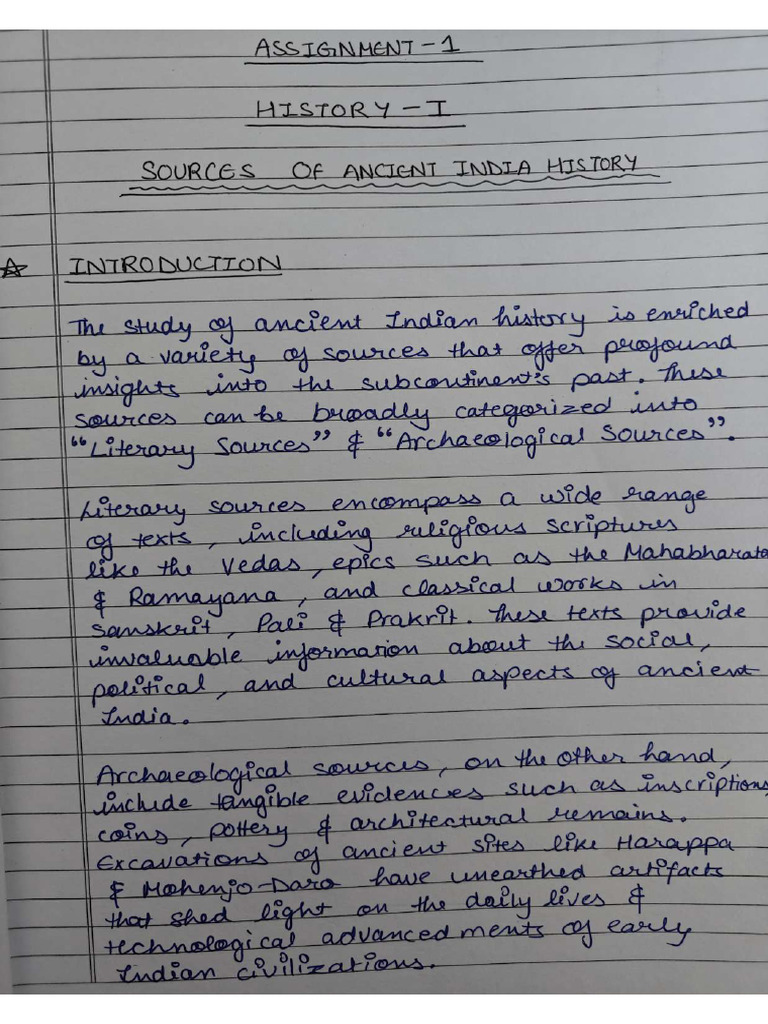 ASSIGNMENT-1
HISTORY-I
SOURCES OF ANCIENT INDIA HISTORY
☆ INTRODUCTION
The study of ancient Indian history is enriched
by a variety of sources that offer profound
insights into the subcontinent's past. These
sources can be broadly categorized into
"Literary Sources" & "Archaeological Sources".
Literary sources encompass a wide range
of texts, including religious scriptures
like the Vedas, epics such as the Mahabharata
& Ramayana, and classical works in
Sanskrit, Pali & Prakrit. These texts provide
invaluable information about the social,
political, and cultural aspects of ancient
India.
Archaeological sources, on the other hand,
include tangible evidences such as inscriptions,
coins, pottery & architectural remains.
Excavations of ancient sites like Harappa
& Mohenjo-Daro have unearthed artifacts
that shed light on the daily lives &
technological advancedments of early
Indian civilizations.